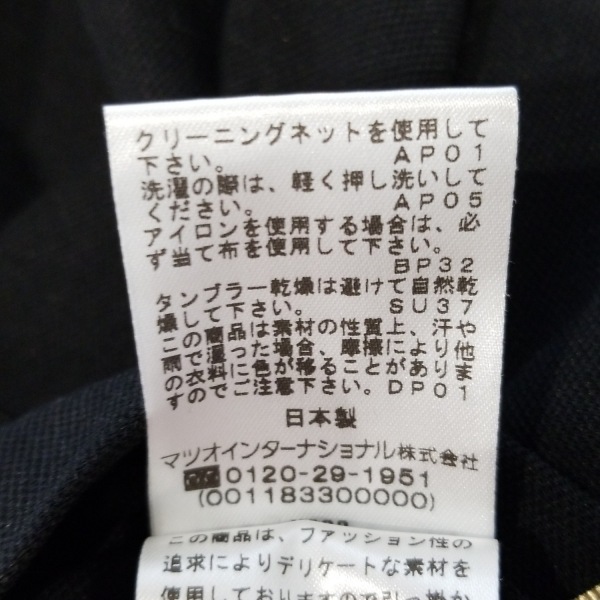 クリーニングネットを使用して
下さい。 AP01
洗濯の際は、軽く押し洗いして
ください。 AP05
アイロンを使用する場合は、必
ず当て布を使用して下さい。
BP32
タンブラー乾燥は避けて自然乾
燥して下さい。 SU37
この商品は素材の性質上、汗や
雨で濡った場合、摩擦により他
の衣料に色が移ることがありま
すのでご注意下さい。DP01
日本製
マツオインターナショナル株式会社
0120-29-1951
(001183300000)
この商品は、ファッション性の
追求によりデリケートな素材を
使用しておりますので引っ掛か